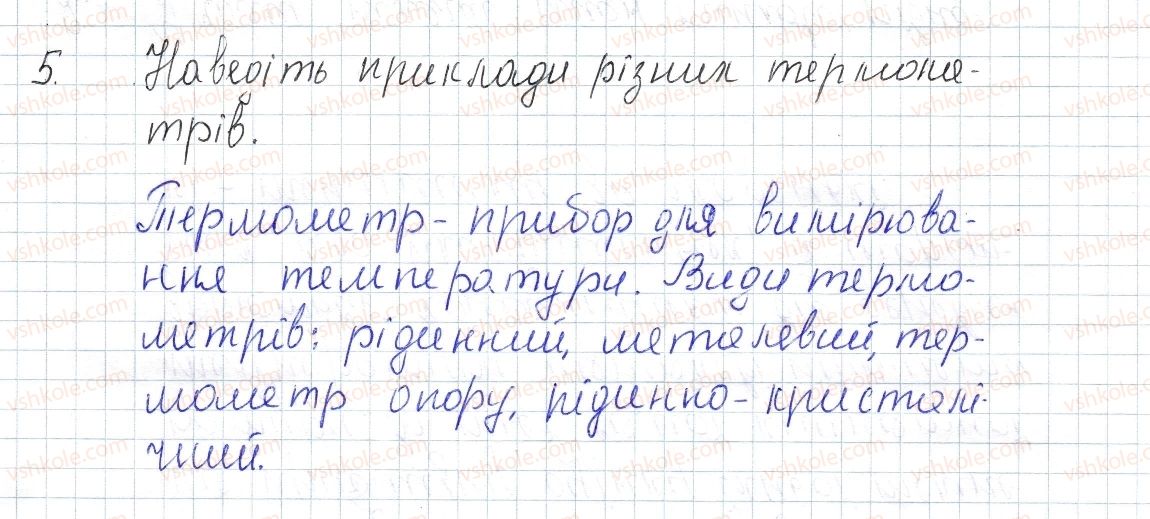 5. Наведіть приклади різних термоме-
трів.
Термометр - прибор для вимірюва-
ння температури. Види термо-
метрів: рідинний, металевий, тер-
мометр опору, рідинно-кристалі-
чний.